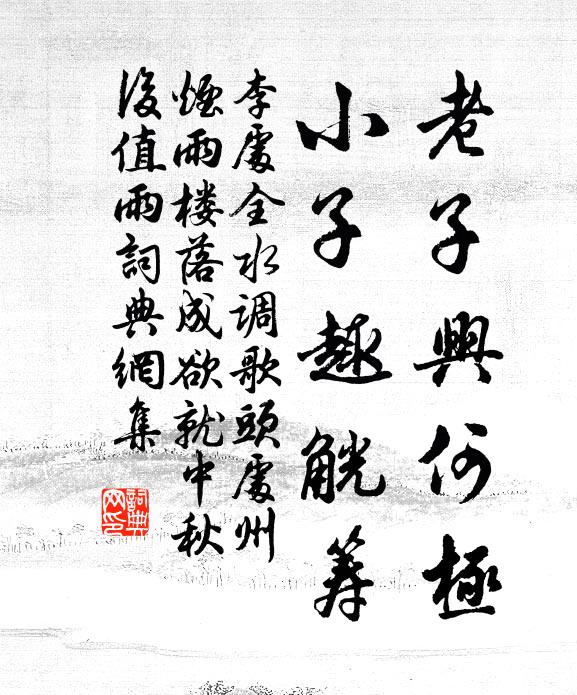 老子興何極
小子趣觥籌
李處全水调歌頭處州
煙雨楼落成欲就中秋
後值雨詞典網集
詞典網印